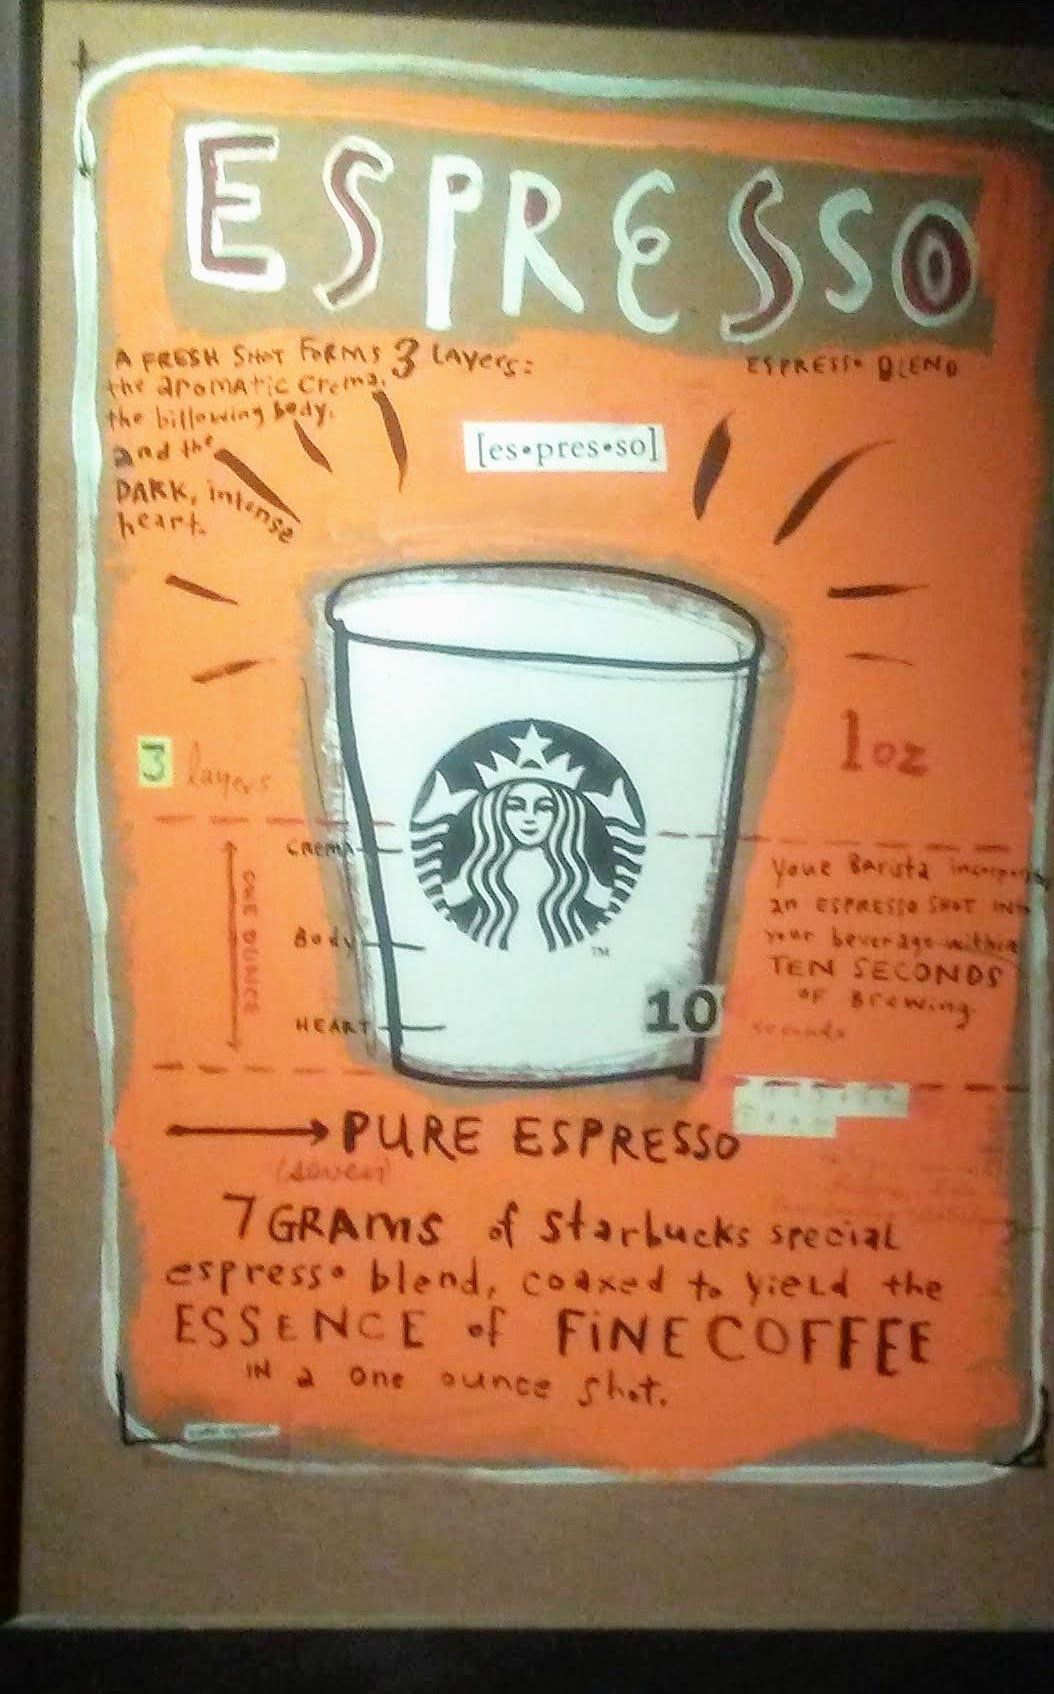 ESPRESSO
A FRESH SHOT FORMS 3 Layers:
the aromatic crema,
the billowing body,
and the
DARK, intense
heart.
ESPRESSO BLEND
[es•pres•so]
1oz
3 layers
CREMA
Body
HEART
ONE OUNCE
Your Barista
an ESPRESSO SHOT INTO
your beverage within
TEN SECONDS
OF Brewing
10
seconds
PURE ESPRESSO
(seven)
7 GRAMS of Starbucks special
espresso blend, coaxed to yield the
ESSENCE of FINE COFFEE
IN a one ounce shot.
TM